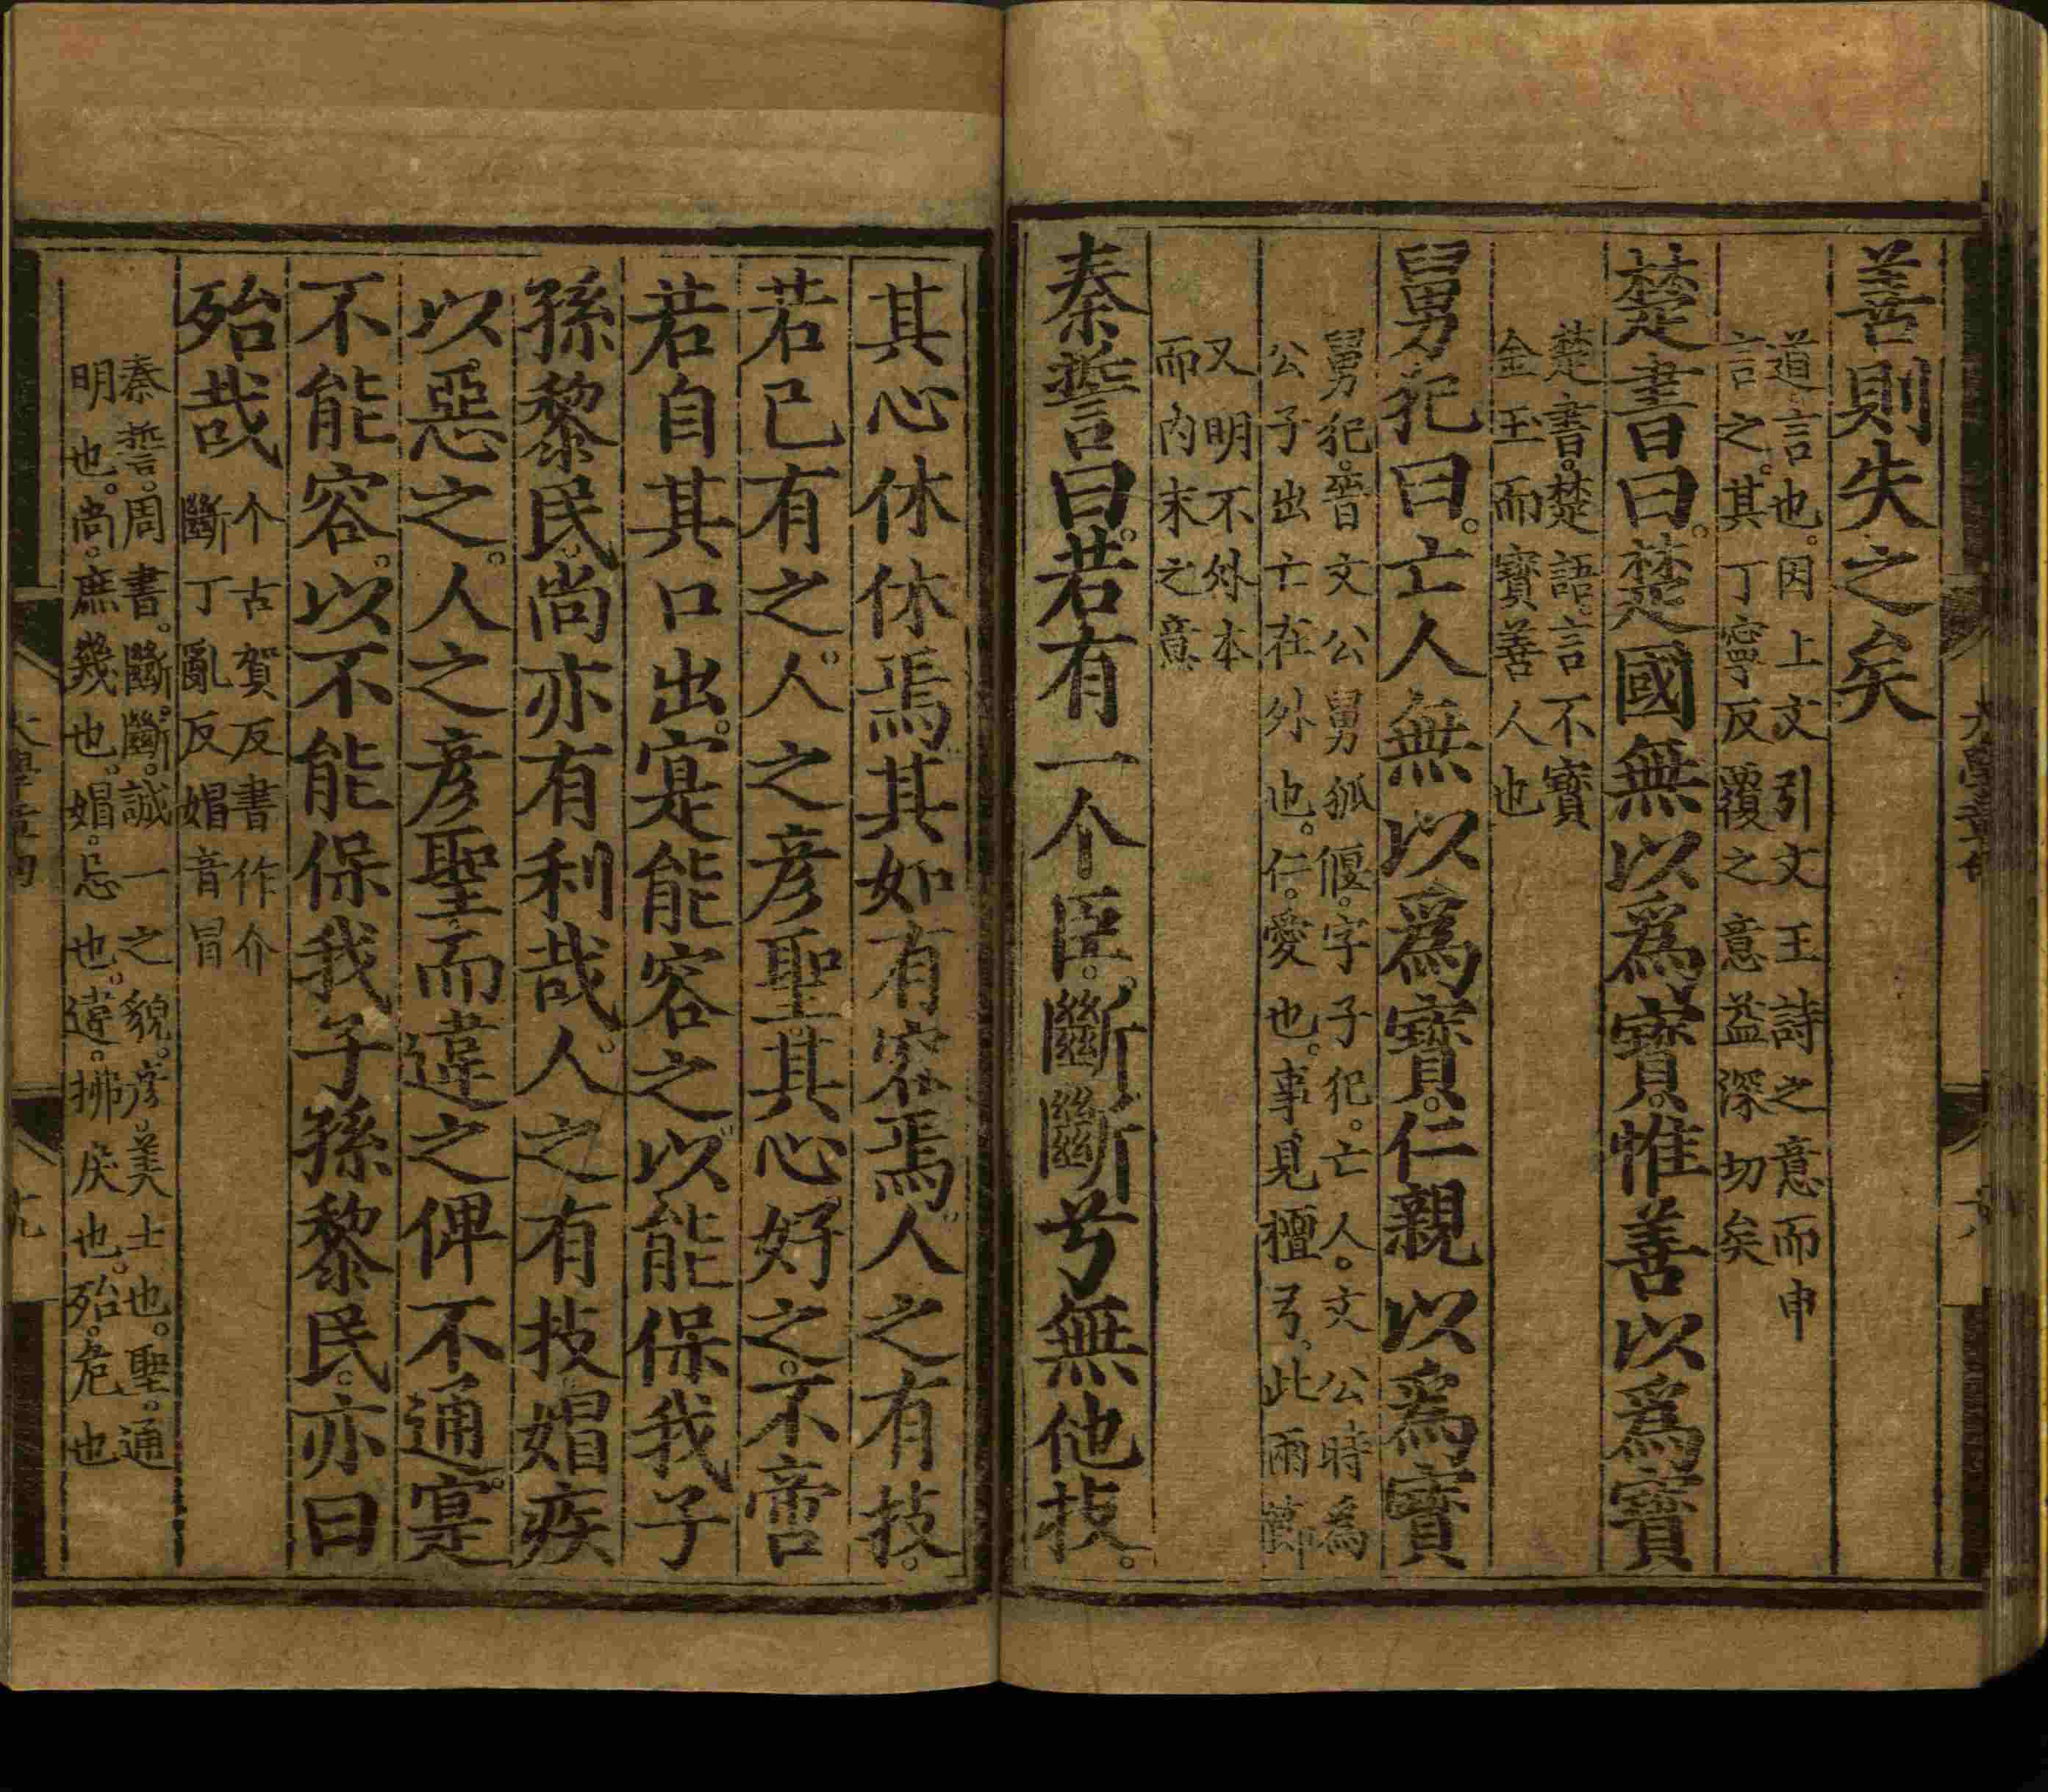 善則失之矣
道。言也。因上文引文王詩之意而申
言之。其丁寧反覆之意益深切矣
楚書曰。楚國無以爲寶。惟善以爲寶
楚書。楚語。言不寶
金玉而寶善人也
舅犯曰。亡人無以爲寶。仁親以爲寶
舅犯。晉文公舅狐偃。字子犯。亡人。文公時爲
公子出亡在外也。仁。愛也。事見檀弓。此兩節
又明不外本
而內末之意
秦誓曰。若有一个臣。斷斷兮無他技。
其心休休焉其如有容焉。人之有技。
若已有之。人之彥聖。其心好之。不啻
若自其口出。寔能容之。以能保我子
孫黎民。尚亦有利哉。人之有技媢疾
以惡之。人之彥聖。而違之俾不通。寔
不能容。以不能保我子孫黎民。亦曰
殆哉
个古賀反書作介
斷丁亂反媢音冒
秦誓。周書。斷斷。誠一之貌。彥。美士也。聖。通
明也。尚。庶幾也。媢。忌也。違。拂戾也。殆。危也